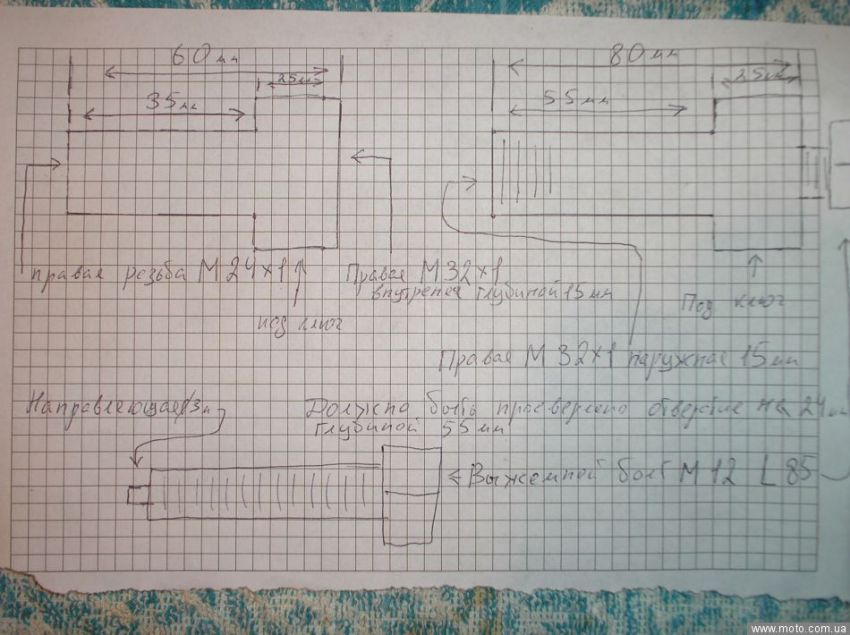 60мм
80мм
25мм
25мм
35мм
55мм
правая резьба М24×1
Правая М32×1
внутреняя глубиной 15мм
под ключ
Под ключ
Правая М32×1 наружная 15мм
Направляющая
Должно быть просверлено отверстие на 24мм
глубиной 55мм
Выжемной болт М12 L 85
www.moto.com.ua